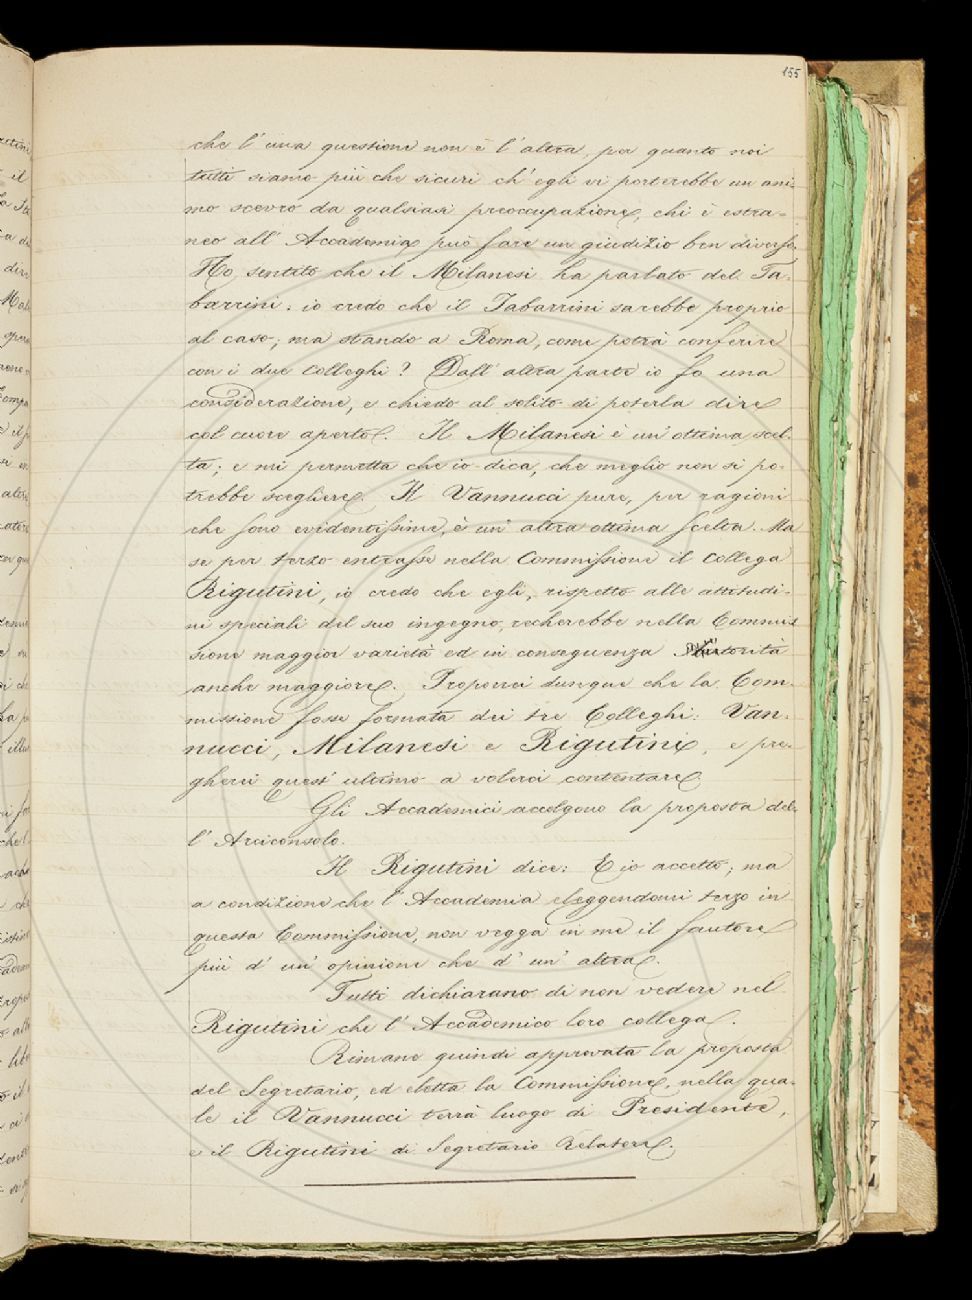 155
che l'una questione non è l'altra, per quanto noi
tutti siamo più che sicuri ch'egli vi porterebbe un ani-
mo scevro da qualsiasi preoccupazione, chi è estra-
neo all'Accademia può fare un giudizio ben diverso.
Ho sentito che il Milanesi ha parlato del Ta-
barrini: io credo che il Tabarrini sarebbe proprio
al caso; ma stando a Roma, come potrà conferire
con i due Colleghi? Dall'altra parte io fo una
considerazione, e chiedo al solito di poterla dire
col cuore aperto. Il Milanesi è un'ottima scel-
ta; e mi permetta che io dica, che meglio non si po-
trebbe scegliere. Il Vannucci pure, per ragioni
che sono evidentissime, è un'altra ottima scelta. Ma
se per terzo entrasse nella Commissione il collega
Rigutini, io credo che egli, rispetto alle attitudi-
ni speciali del suo ingegno, recherebbe nella Commis
sione maggior varietà ed in conseguenza autorità
anche maggiore. Proporrei dunque che la Com-
missione fosse formata dei tre Colleghi: Van-
nucci, Milanesi e Rigutini, e pre-
gherei quest'ultimo a volerci contentare.
Gli Accademici accolgono la proposta del-
l'Arciconsolo.
Il Rigutini dice: E io accetto; ma
a condizione che l'Accademia eleggendomi terzo in
questa Commissione, non vegga in me il fautore
più d'un'opinione che d'un'altra.
Tutti dichiarano di non vedere nel
Rigutini che l'Accademico loro collega.
Rimane quindi approvata la proposta
del Segretario, ed eletta la Commissione, nella qua-
le il Vannucci terrà luogo di Presidente,
e il Rigutini di Segretario Relatore.